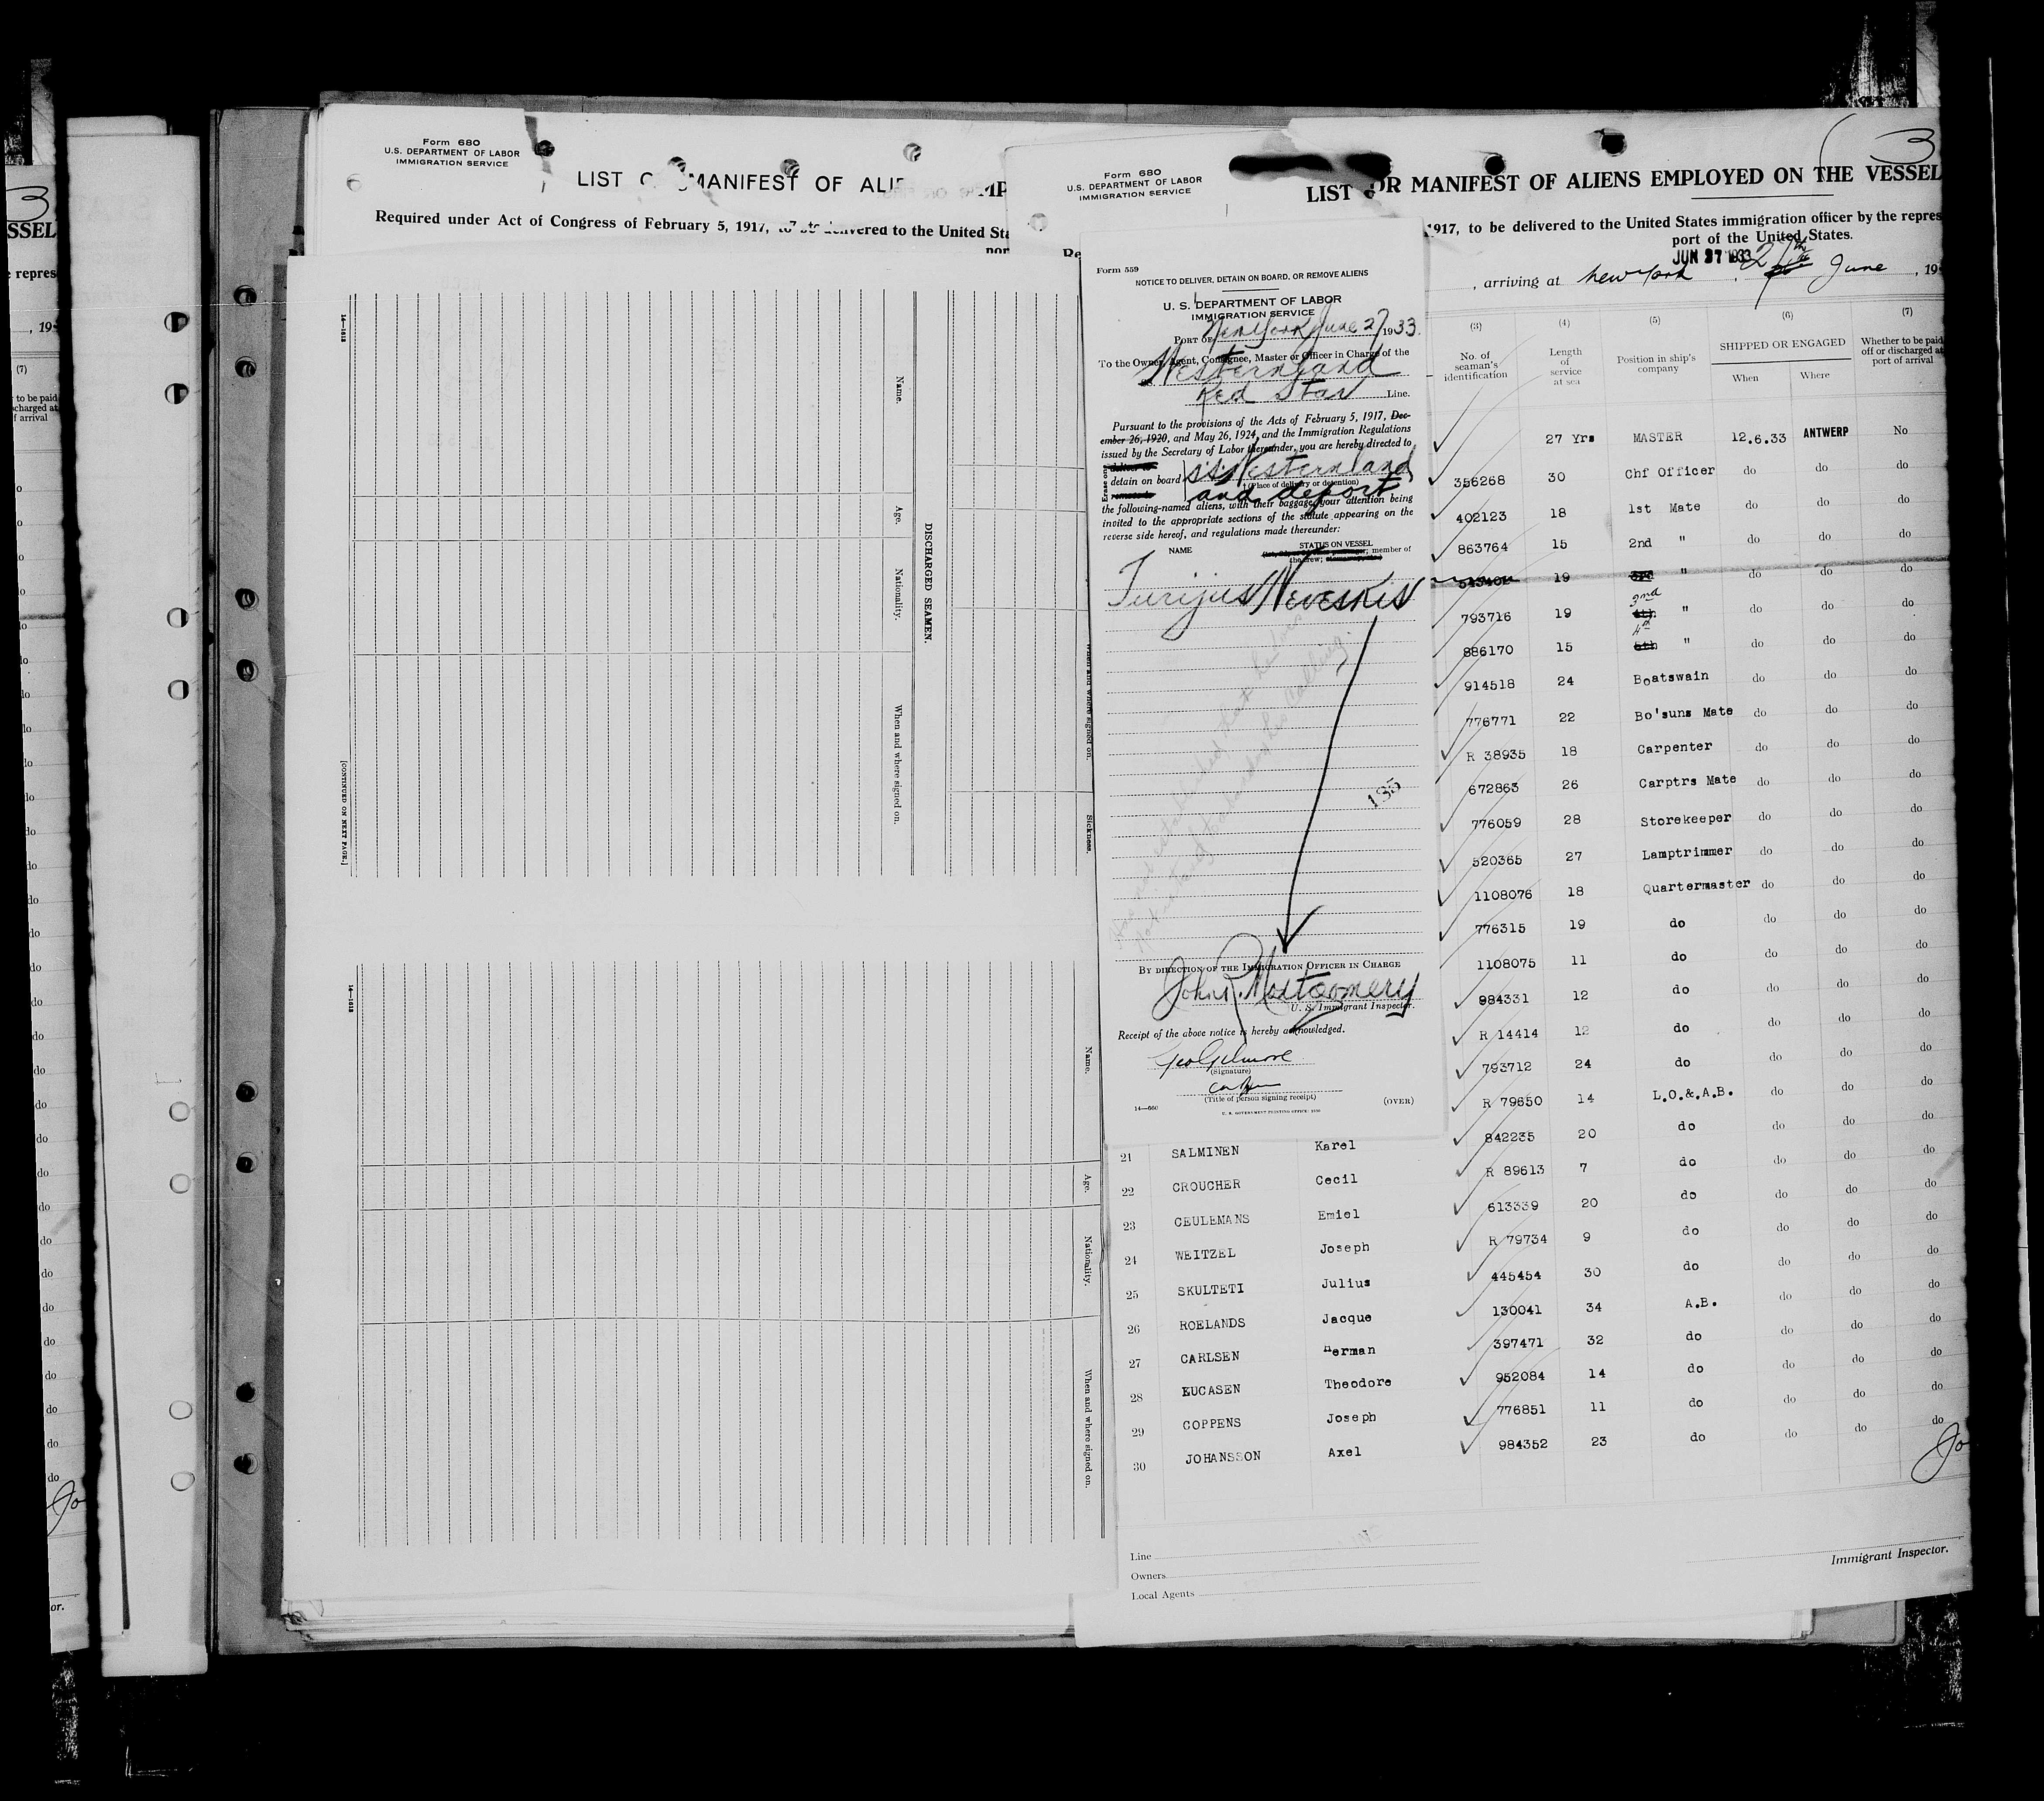 Form 680
U.S. DEPARTMENT OF LABOR
IMMIGRATION SERVICE
LIST MANIFEST OF
Required under Act of Congress of February 5, 1917, delivered to the United
14—1618
Name.
Age.
Nationality.
When and where signed on.
DISCHARGED SEAMEN.
When and where signed on.
Sickness.
[CONTINUED ON NEXT PAGE.]
14—1618
Name.
Age.
Nationality.
When and where signed on.
Form 680
U.S. DEPARTMENT OF LABOR
IMMIGRATION SERVICE
3
LIST OR MANIFEST OF ALIENS EMPLOYED ON THE VESSEL
1917, to be delivered to the United States immigration officer by the repres
port of the United States.
JUN 27 1933
, arriving at New York , 27th June , 19
Form 559
NOTICE TO DELIVER, DETAIN ON BOARD, OR REMOVE ALIENS
U. S. DEPARTMENT OF LABOR
IMMIGRATION SERVICE
PORT OF New York June 27 1933.
To the Owner, Agent, Consignee, Master or Officer in Charge of the
SS Westernland
Red Star Line.
Pursuant to the provisions of the Acts of February 5, 1917, Dec-
ember 26, 1920, and May 26, 1924, and the Immigration Regulations
issued by the Secretary of Labor thereunder, you are hereby directed to
Erase one
deliver to
detain on board S.S. Westernland
remove to
(Place of delivery or detention)
and deport
the following-named aliens, with their baggage, your attention being
invited to the appropriate sections of the statute appearing on the
reverse side hereof, and regulations made thereunder:
NAME STATUS ON VESSEL
member of
the crew;
Jurijus Neveskis
135
BY DIRECTION OF THE IMMIGRATION OFFICER IN CHARGE
John R. Montgomery
U. S. Immigrant Inspector.
Receipt of the above notice is hereby acknowledged.
Geo Gilmore
(Signature)
(Title of person signing receipt)
14—660
U. S. GOVERNMENT PRINTING OFFICE: 1930
(OVER)
(3) (4) (5) (6) (7)
No. of seaman's identification Length of service at sea Position in ship's company SHIPPED OR ENGAGED When Where Whether to be paid off or discharged at port of arrival
27 Yrs MASTER 12.6.33 ANTWERP No
356268 30 Chf Officer do do do
402123 18 1st Mate do do do
863764 15 2nd " do do do
19 3rd " do do do
793716 19 3rd 4th " do do do
886170 15 4th 5th " do do do
914518 24 Boatswain do do do
776771 22 Bo'suns Mate do do do
R 38935 18 Carpenter do do do
672863 26 Carptrs Mate do do do
776059 28 Storekeeper do do do
520365 27 Lamptrimmer do do do
1108076 18 Quartermaster do do do
776315 19 do do do do
1108075 11 do do do do
984331 12 do do do do
R 14414 12 do do do do
793712 24 do do do do
R 79650 14 L.O.&.A.B. do do do
21 SALMINEN Karel 842235 20 do do do do
22 CROUCHER Cecil R 89613 7 do do do do
23 CEULEMANS Emiel 613339 20 do do do do
24 WEITZEL Joseph R 79734 9 do do do do
25 SKULTETI Julius 445454 30 do do do do
26 ROELANDS Jacque 130041 34 A.B. do do do
27 CARLSEN Herman 397471 32 do do do do
28 EUCASEN Theodore 952084 14 do do do do
29 COPPENS Joseph 776851 11 do do do do
30 JOHANSSON Axel 984352 23 do do do do
Line
Owners
Local Agents
Immigrant Inspector.